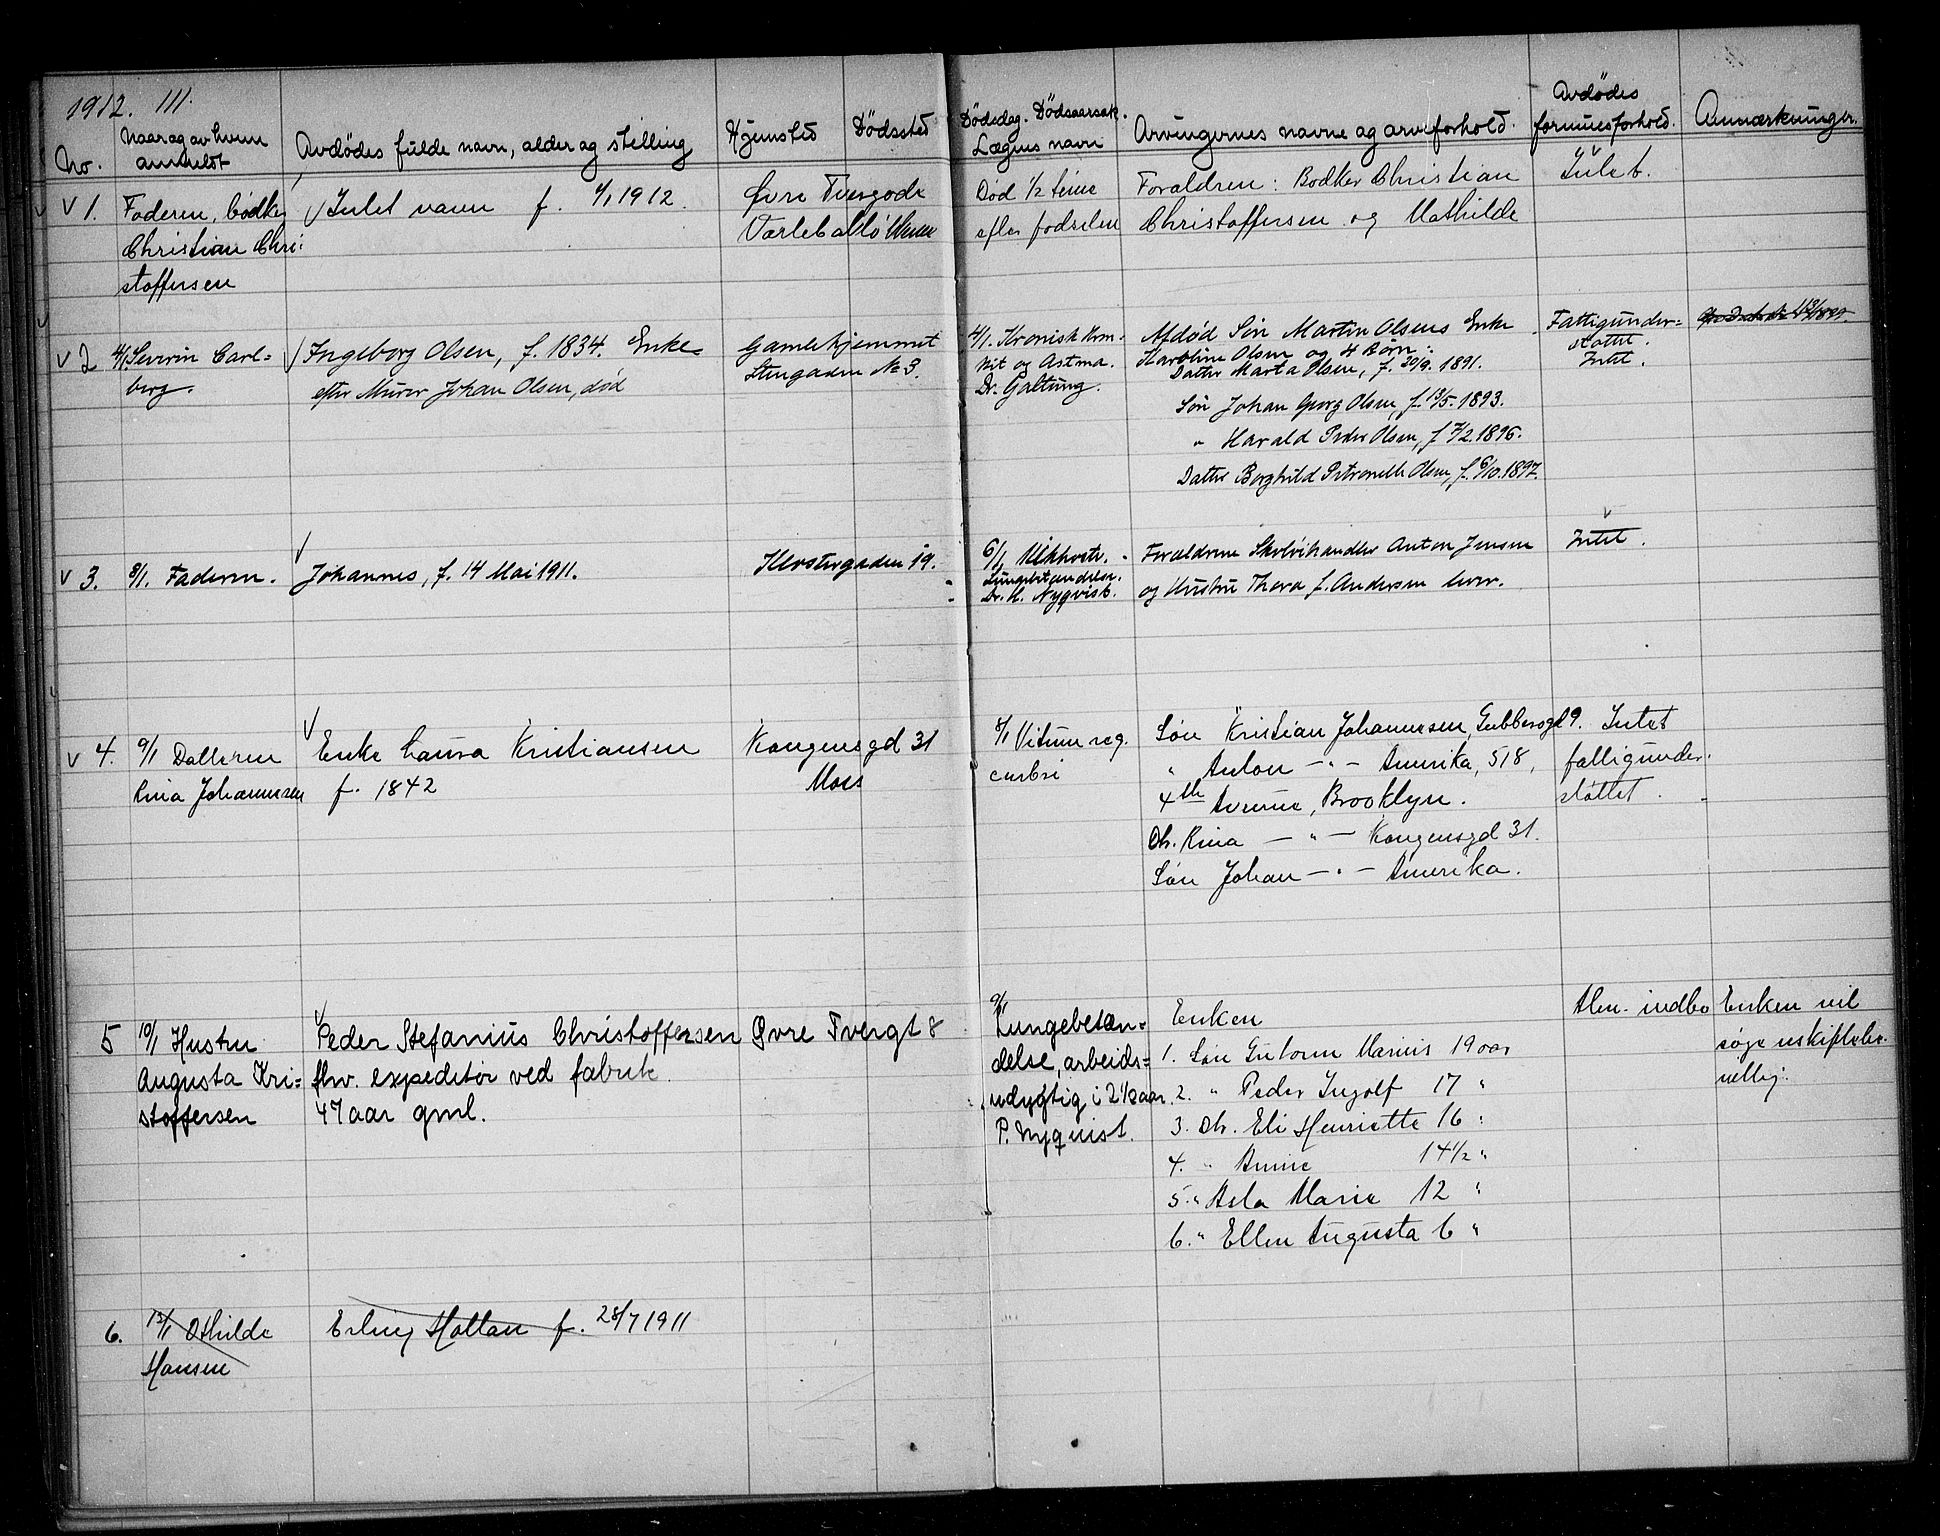 1912. III.
No.
Naar og av hvem
anmeldt
Avdødes fulde navn, alder og stilling
Hjemsted
Dødssted
Dødsdag. Dødsaarsak.
Lægens navn
Arvingernes navne og arveforhold.
Avdødes
formuesforhold.
Anmærkninger.
1. Faderen, bødker
Christian Chri-
stoffersen
Intet navn f. 4/1 1912.
Øvre Tvergade
Død 1/2 time
efter fødselen
Forældren: Bødker Christian
Christoffersen og Mathilde
Intet.
2 4/1 Severin Carl=
berg.
Ingeborg Olsen, f. 1834. Enke
efter Murer Johan Olsen, død
Gamlehjemmet
Stengaden No 3.
4/1. Kronisk Bron-
kit og Astma.
Dr. Galtung.
Afdød Søn Martin Olsens Enke
Karoline Olsen og 4 Børn:
Datter Marta Olsen, f. 20/9. 1891.
Søn Johan Georg Olsen, f. 13/5. 1893.
" Harald Peder Olsen, f. 7/2. 1896.
Datter Borghild Petronelle Olsen, f. 6/10. 1897.
Fattigunder-
støttet.
Intet.
3. 8/1. Faderen.
Johannes, f. 14 Mai 1911.
Klostergaden 19.
6/1 Kikhoste.
Lungebetændelse.
Dr. H. Nyqvist.
Forældrene Skotøihandler Anton Jensen
og Hustru Thora f. Andersen lever.
Intet.
4. 9/1 Datteren
Rina Johannessen
Enke Laura Kristiansen
f. 1842
Kongensgd 31
Moss
8/1 Vitium reg.
cordis
Søn Kristian Johannessen, Gubbersgd 9.
" Anton — " — Amerika, 518,
4th Avenue, Brooklyn.
Dtr. Rina — " — Kongensgd 31.
Søn Johan — " — Amerika.
Intet
fattigunder-
støttet.
5 10/1 Hustru
Augusta Kri=
stoffersen
Peder Stefanius Christoffersen
fhv. expeditør ved fabrik.
47 aar gml.
Øvre Tvergt 8
9/1
Lungebetæn=
delse, arbeids=
udygtig i 2 1/2 aar.
P. Nyquist.
Enken
1. Søn Gutorm Marius 19 aar
2. " Peder Ingolf 17 "
3. Dtr. Eli Henriette 16 "
4. " Annie 14 1/2 "
5. " Asla Marie 12 "
6. " Ellen Augusta 6 "
Alm. indbo
Enken vil
søge uskiftebe-
villing.
6. 12/1 Othilde
Hansen
Erling Holtan f. 28/7 1911